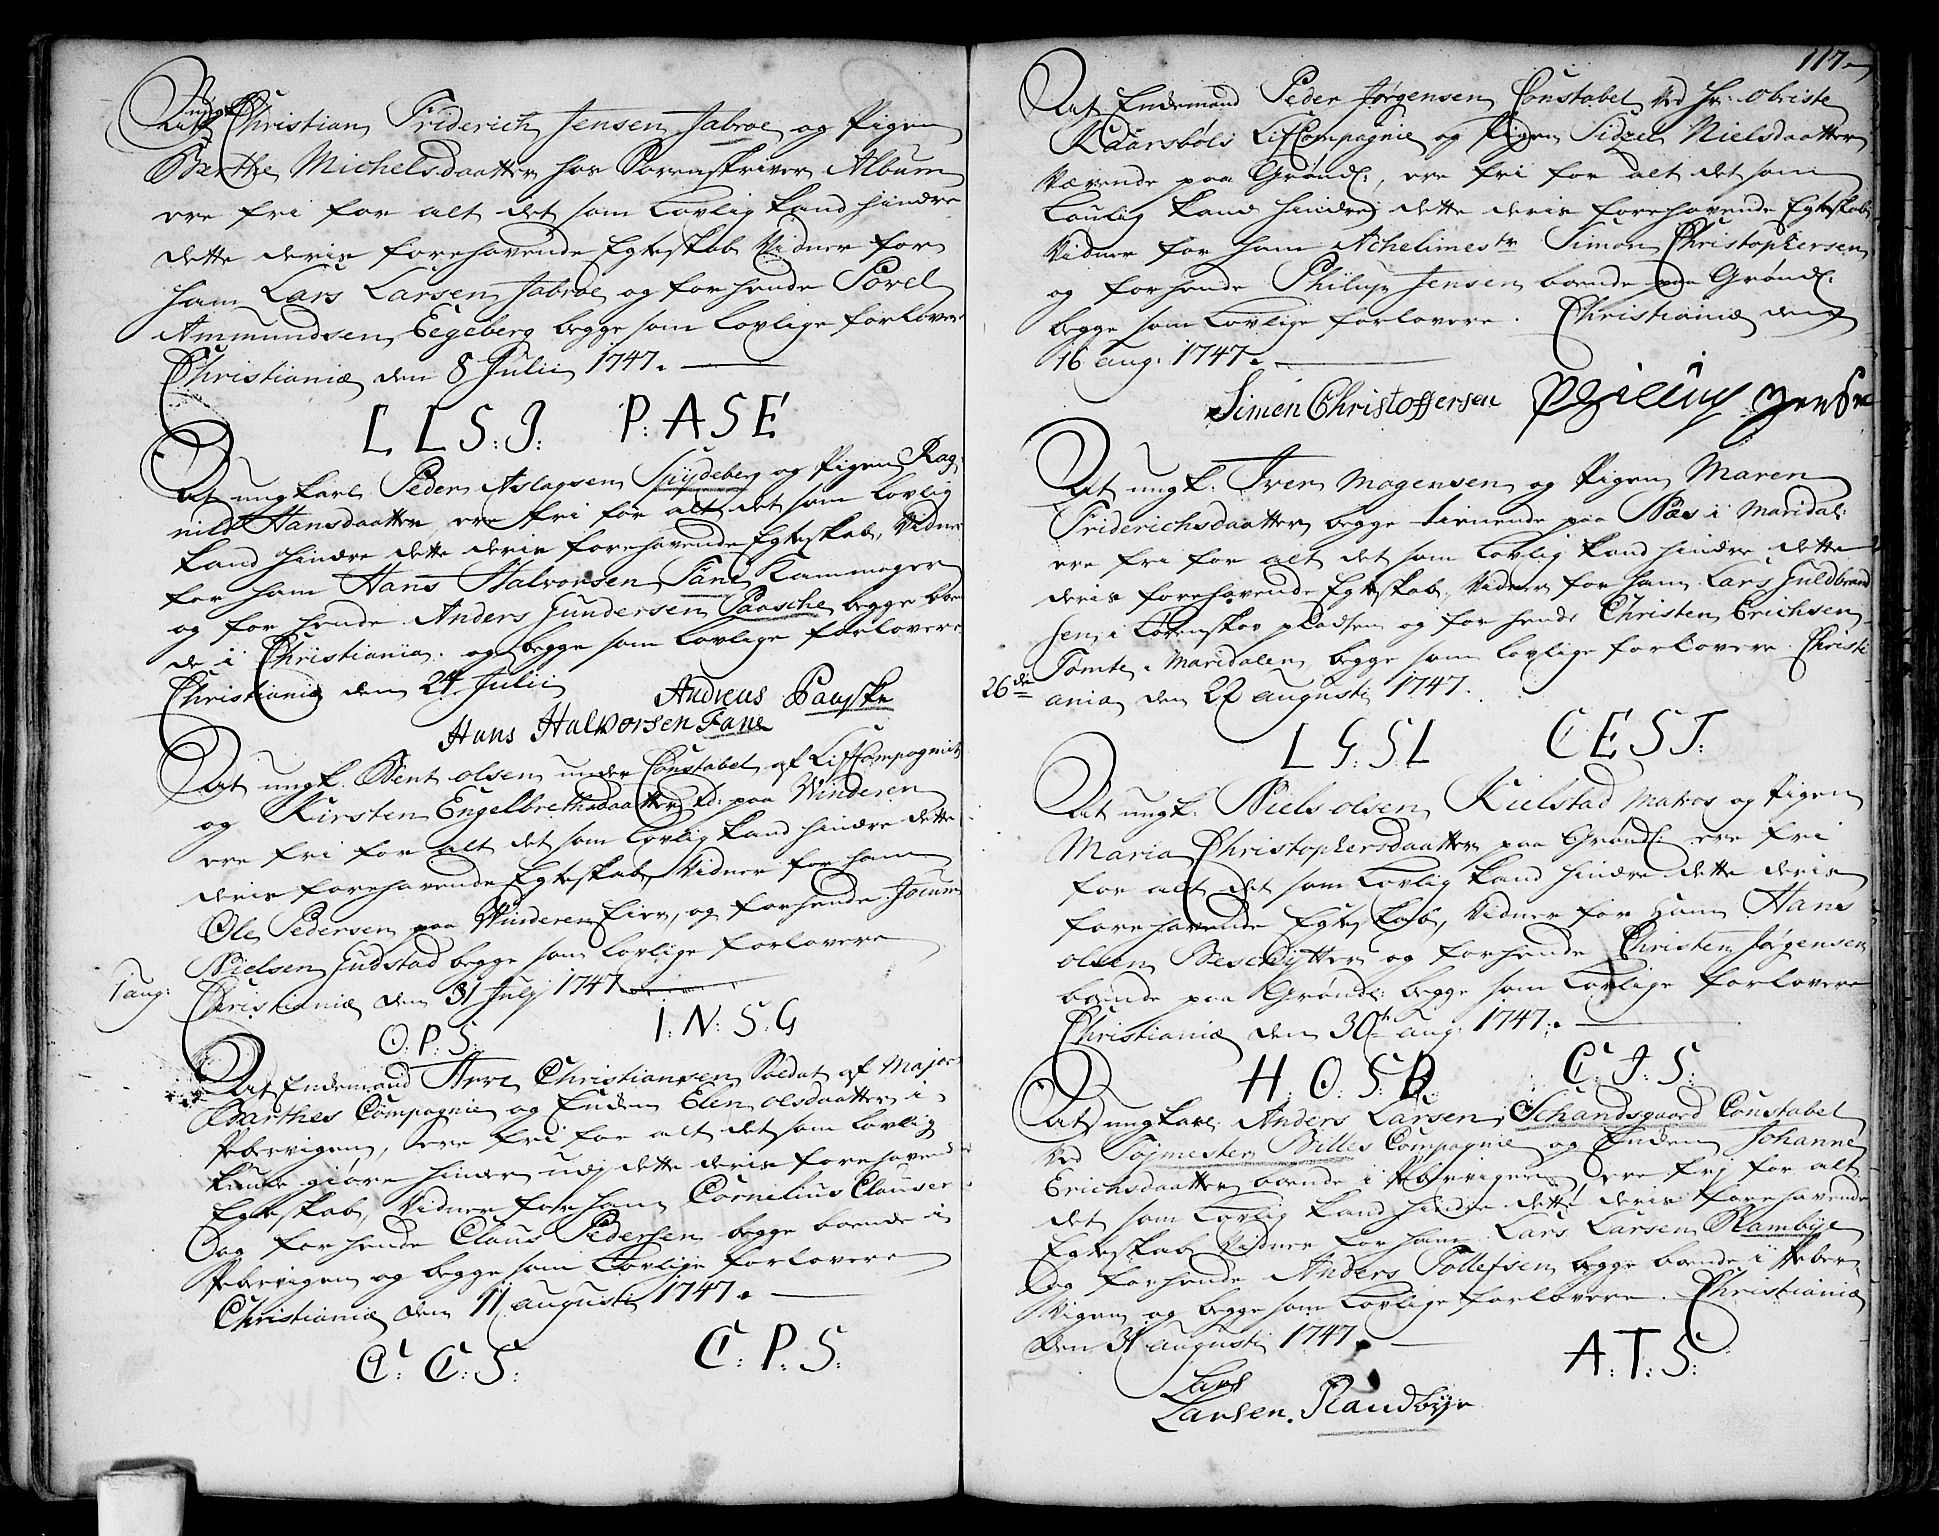 ungk:
At Christian Friderich Jensen Jabroe og Pigen
Berthe Michelsdaatter hos Sorenskriver Album
ere fri for alt det som lovlig kand hindre
dette deris forehavende Egteskab, Vidner for
ham Lars Larsen Jabroe og for hende Povel
Ammundsen Eegeberg begge som lovlige forlovere
Christianiæ den 8 Julii 1747.
L L S: J: P: A S E
At ungkarl Peder Aslagsen Spydeberg og Pigen Rag-
nild Hansdaatter ere fri for alt det som lovlig
kand hindre dette deris forehavende Egteskab, Vidner
for ham Hans Halvorsen Fane Kammager
og for hende Anders Gundersen Paasche begge boen
de i Christiania. og begge som lovlige forlovere
Christianiæ den 24 Julii
Andreas Paaske
Hans Halvorsen Fane
At ungk. Bent olsen under Constabel af LifCompagniet
og Kirsten Engelbrethsdaatter td: paa Winderen
ere fri for alt det som lovlig kand hindre dette
deris forehavende Egteskab, Vidner for ham
Ole Pedersen paa Winderen Eier, og for hende Jocum
Nielsen Gudstad begge som lovlige forlovere
1 aug:
Christianiæ den 31 Julj 1747
O: P: S: I: N: S: G
At Enckemand Arve Christiansen Soldat af Major
Barthes Compagnie og Enken Elen olsdaatter i
Pebervigen, ere fri for alt det som lovlig
kunde giøre hinder udj dette deris forehavende
Egteskab, Vidner for ham Cornelius Clausen
og for hende Claus Pedersen begge boende i
Pebervigen og begge som lovlige forlovere
Christianiæ den 11 augusti 1747.
C: C: S: C: P: S:
117.
At Enckemand Peder Jørgensen Constabel ved Hr: Obriste
Kaarsbøls LifCompagnie og Pigen Sidzel Nielsdaatter
Værende paa Grønd:, ere fri for alt det som
Loulig kand hindre dette deris forehavende Egteskab,
Vidner for ham Simon Christophersen
og for hende Philup Jensen boende paa Grønd:
begge som lovlige forlovere. Christianiæ den
16 aug. 1747.
Simen Christoffersen Philliup Jensen
At ungk. Iver Mogensen og Pigen Maren
Friderichsdaatter begge tienende paa Næs i Maridal:
ere fri for alt det som lovlig kand hindre dette
deris forehavende Egteskab, Vidner for ham Lars Guldbrand
sen i Lørenskov pladsen og for hende Christen Erichsen
Tomte i Maridalen begge som lovlige forlovere. Christi
26de
ania den 22 augusti 1747.
L G: S L C E S T:
At ungk. Niels olsen Kielstad Matros og Pigen
Maria Christophersdaatter paa Grønd: ere fri
for alt det som lovlig kand hindre dette deris
forehavende Egteskab, Vidner for ham Hans
olsen Beschytter og for hende Christen Jørgensen
boende paa Grønd: begge som lovlige forlovere
Christianiæ den 30th aug: 1747.
H. O: S: B C: J: S:
At ungkarl Anders Larsen Schandsgaard Constabel
ved Tøjmester Billes Compagnie og Enken Johanne
Erichsdaatter boende i Pebervigen ere frj for alt
det som lovlig kand hindre dette deris forehavende
Egteskab Vidner for ham Lars Larsen Rambye
og for hende Anders Tollefsen begge boende i Peber-
vigen og begge som lovlige forlovere. Christianiæ
den 31 augusti 1747.
A: T: S:
Lars
Larsen. Randbye